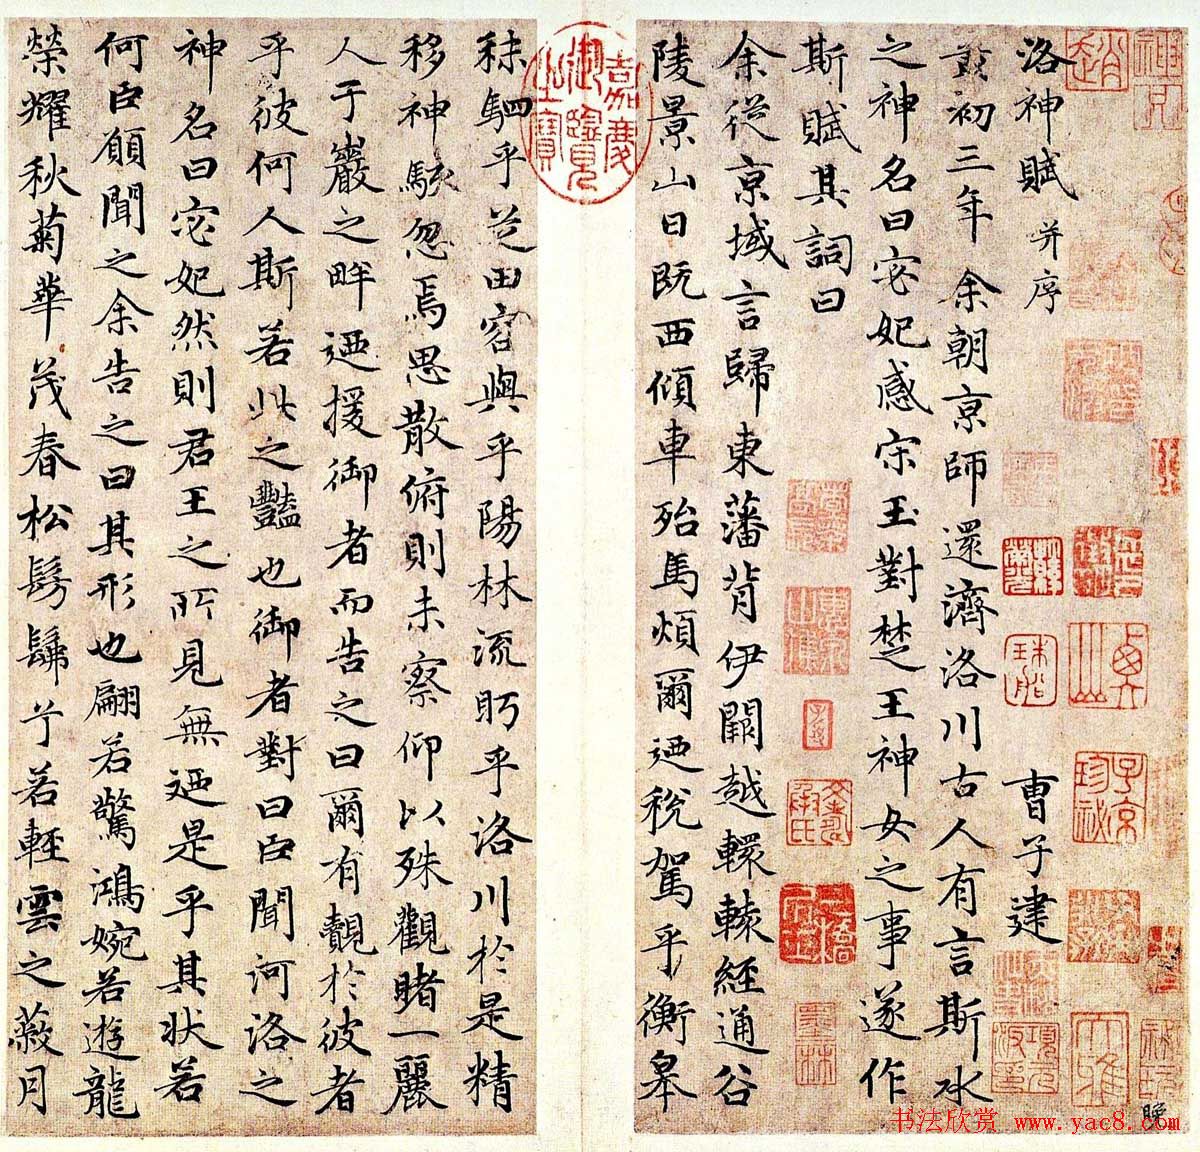 洛神賦 并序 曹子建
黃初三年余朝京師還濟洛川古人有言斯水
之神名曰宓妃感宋玉對楚王神女之事遂作
斯賦其詞曰
余從京域言歸東藩背伊闕越轘轅經通谷
陵景山日既西傾車殆馬煩爾迺稅駕乎衡皋
秣駟乎芝田容與乎陽林流眄乎洛川於是精
移神駭忽焉思散俯則未察仰以殊觀睹一麗
人于巖之畔迺援御者而告之曰爾有覿於彼者
乎彼何人斯若此之豔也御者對曰臣聞河洛之
神名曰宓妃然則君王之所見無迺是乎其狀若
何臣願聞之余告之曰其形也翩若驚鴻婉若遊龍
榮耀秋菊華茂春松髣髴兮若輕雲之蔽月
嘉慶御覽之寶
子京珍祕
墨林
晚
书法欣赏 www.yac8.com